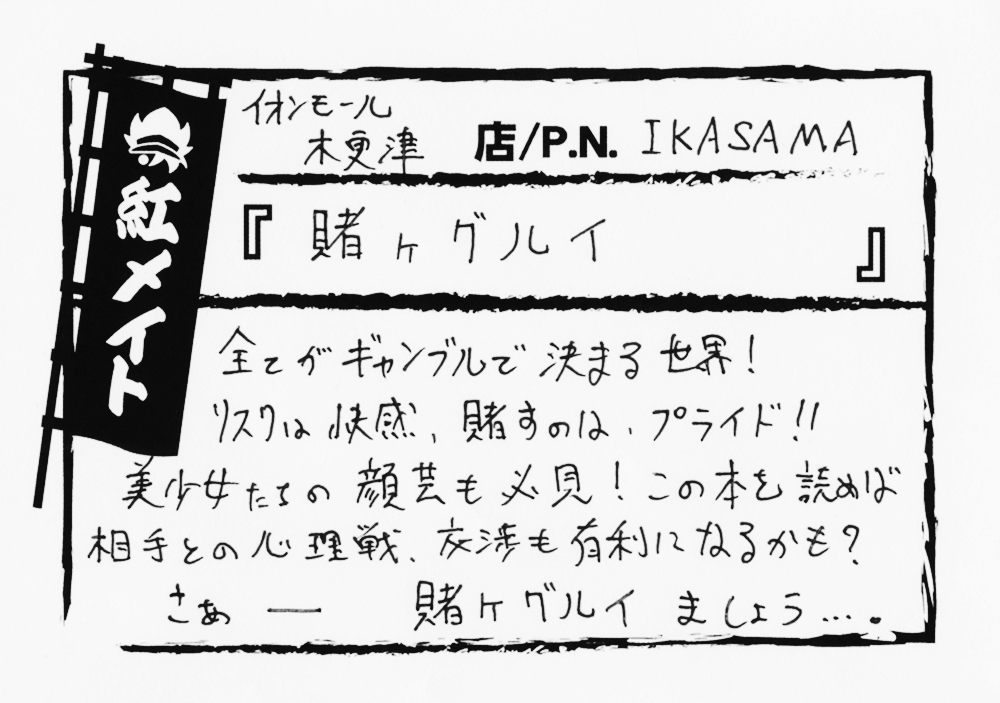 紅メイト
イオンモール
木更津 店/P.N. IKASAMA
『 賭ヶグルイ 』
全てがギャンブルで決まる世界!
リスクは快感、賭すのは、プライド!!
美少女たちの顔芸も必見!この本を読めば
相手との心理戦、交渉も有利になるかも?
さあ ― 賭ケグルイましょう….